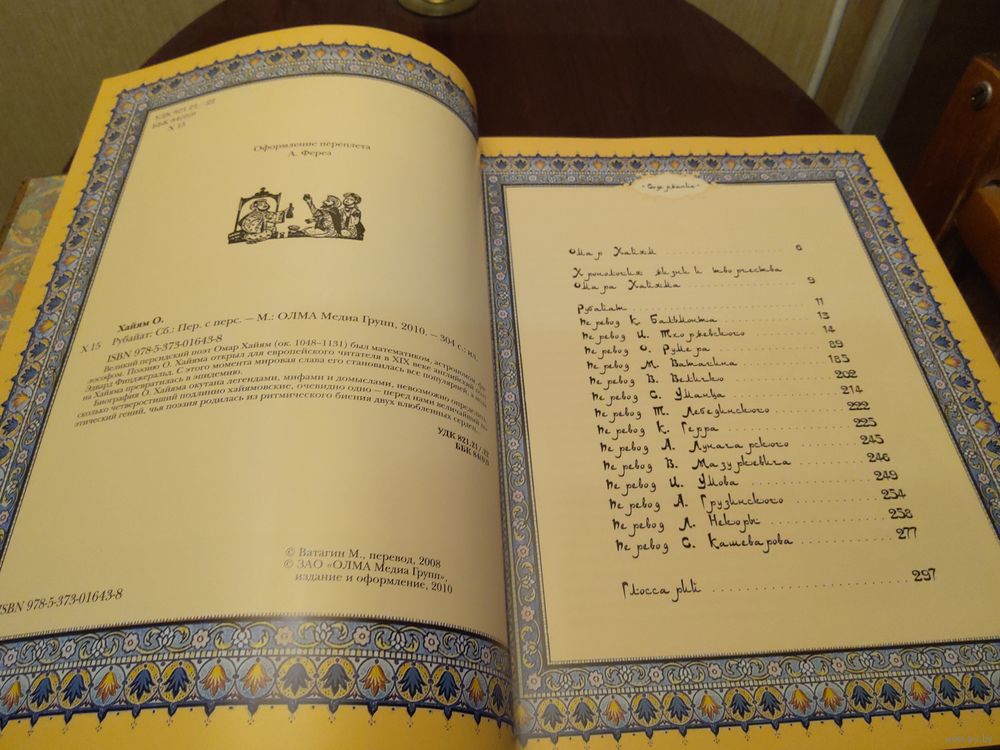 УДК 821.21/.22
ББК 84(0)9
Х 15
Оформление переплета
А. Ферез
Хайям О.
Х 15 Рубайат: Сб.: Пер. с перс. — М.: ОЛМА Медиа Групп, 2010. — 304 с.: ил.
ISBN 978-5-373-01643-8
Великий персидский поэт Омар Хайям (ок. 1048–1131) был математиком, астрономом, фи-
лософом. Поэзию О. Хайяма открыл для европейского читателя в XIX веке английский
Эдвард Фицджеральд. С этого момента мировая слава его становилась все популярней, а мода
на Хайяма превратилась в эпидемию.
Биография О. Хайяма окутана легендами, мифами и домыслами, невозможно определить,
сколько четверостиший подлинно хайямовские, очевидно одно — перед нами величайший по-
этический гений, чья поэзия родилась из ритмического биения двух влюбленных сердец.
УДК 821.21/.22
ББК 84(0)9
© Ватагин М., перевод, 2008
© ЗАО «ОЛМА Медиа Групп»,
издание и оформление, 2010
ISBN 978-5-373-01643-8
Содержание
Омар Хайям 6
Хронология жизни и творчества
Омара Хайяма 9
Рубайат 11
Перевод К. Бальмонта 13
Перевод И. Тхоржевского 14
Перевод О. Румера 89
Перевод М. Ватагина 185
Перевод В. Величко 202
Перевод С. Уманца 214
Перевод Т. Лебединского 222
Перевод К. Герра 225
Перевод А. Лунагарского 245
Перевод В. Мазуркевича 246
Перевод И. Умова 249
Перевод А. Грузинского 254
Перевод Л. Некоры 258
Перевод С. Кашеварова 277
Глоссарий 297